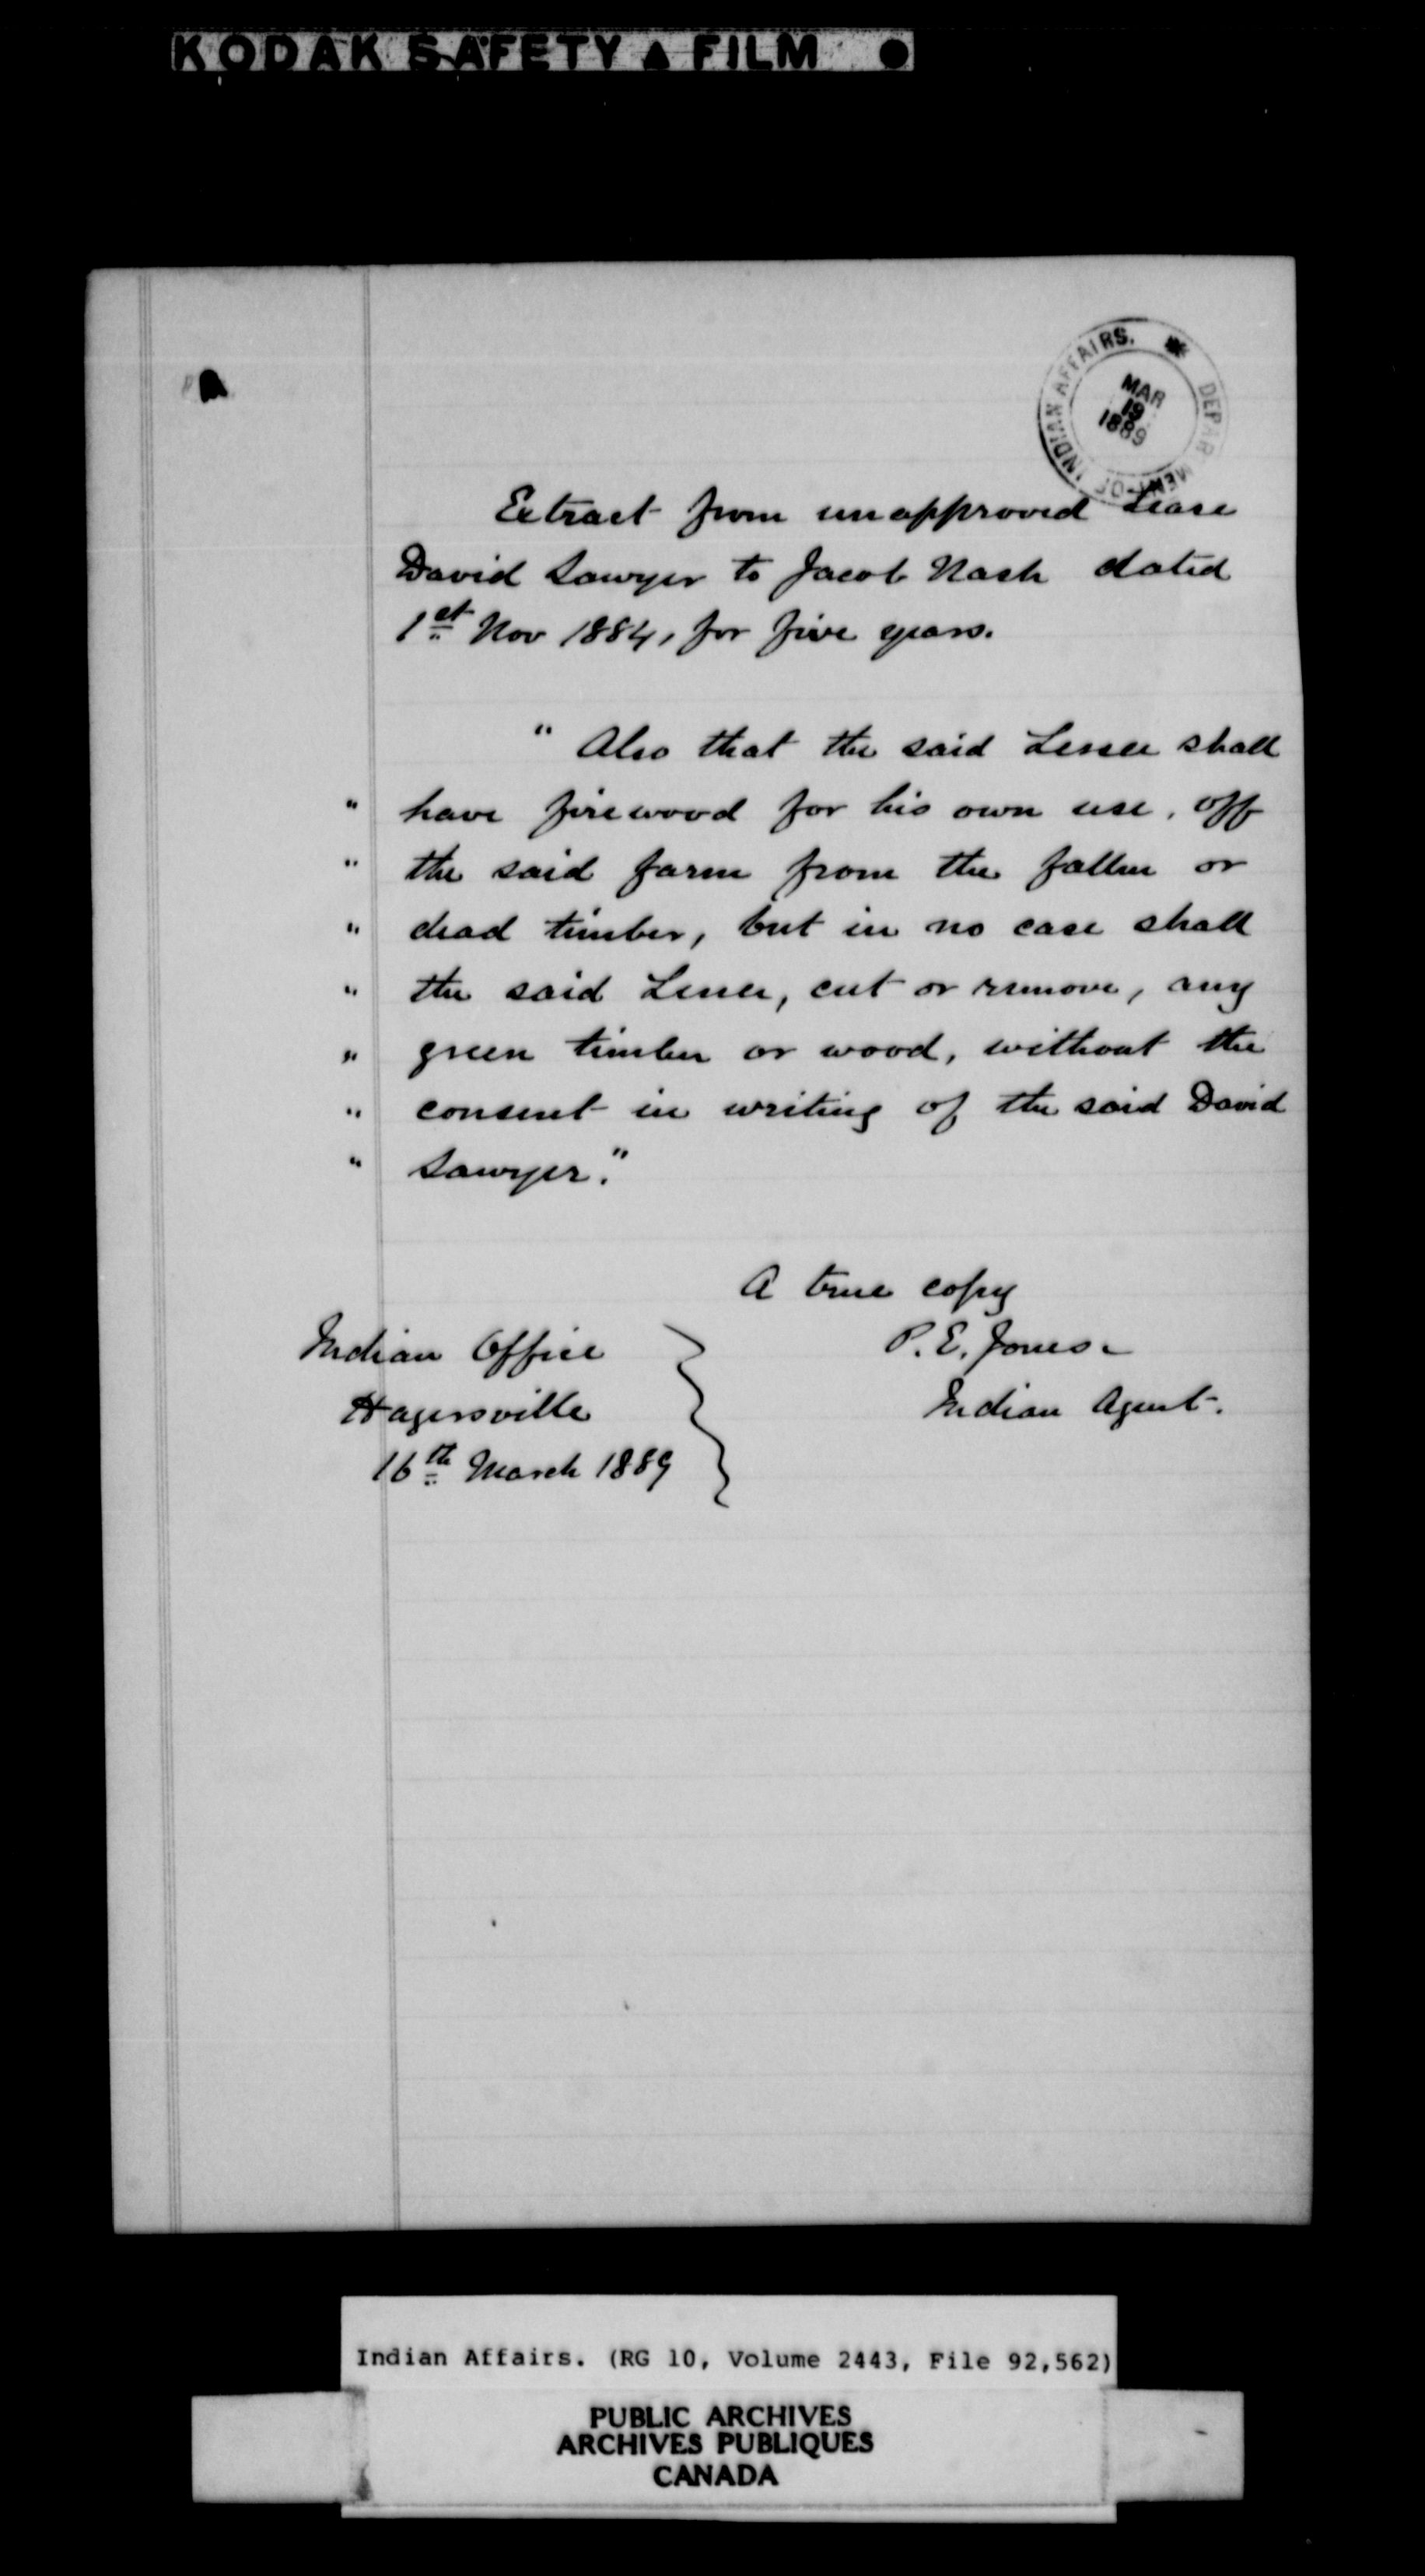 KODAK SAFETY ▲ FILM ●
DEPARTMENT OF INDIAN AFFAIRS. *
MAR
19
1889
Extract from unapproved Lease
David Sawyer to Jacob Nash dated
1st Nov 1884, for five years.
" Also that the said Lessee shall
" have firewood for his own use, off
" the said farm from the fallen or
" dead timber, but in no case shall
" the said Lessee, cut or remove, any
" green timber or wood, without the
" consent in writing of the said David
" Sawyer."
A true copy
P. E. Jones.
Indian Agent.
Indian Office
Hagersville
16th March 1889
Indian Affairs. (RG 10, Volume 2443, File 92,562)
PUBLIC ARCHIVES
ARCHIVES PUBLIQUES
CANADA